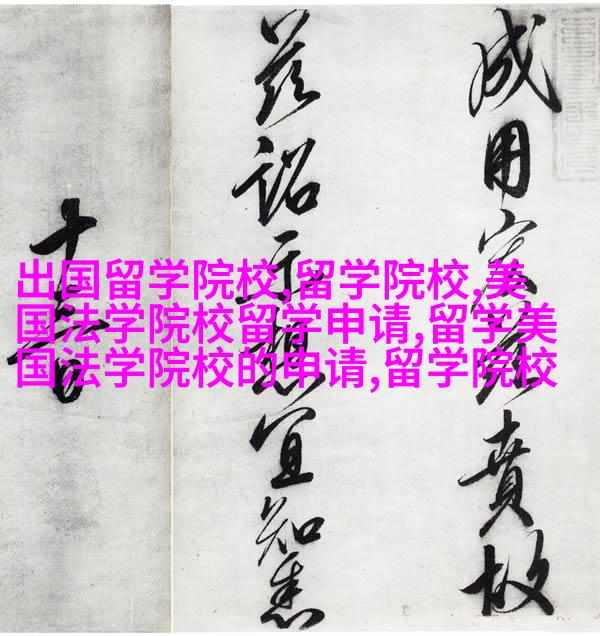 出国留学院校,留学院校,美
国法学院校留学申请,留学美
国法学院校的申请,留学院校
成用賁故
茲詔示想宜知悉
十日